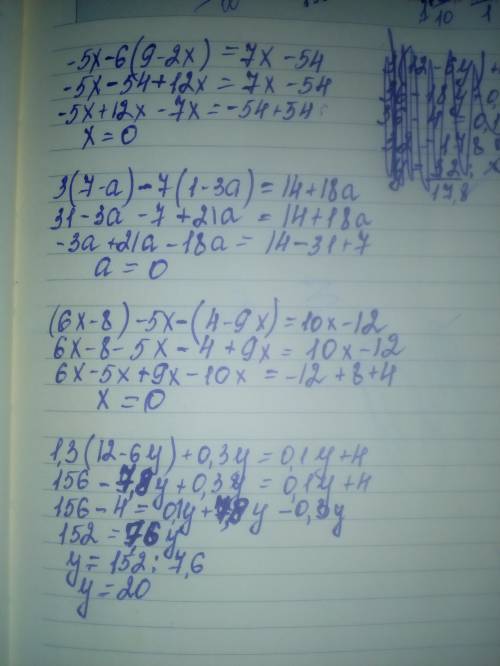 -5x-6(9-2x)=7x-54
-5x-54+12x=7x-54
-5x+12x-7x=-54+54
x=0
3(7-a)-7(1-3a)=14+18a
31-3a-7+21a=14+18a
-3a+21a-18a=14-31+7
a=0
(6x-8)-5x-(4-9x)=10x-12
6x-8-5x-4+9x=10x-12
6x-5x+9x-10x=-12+8+4
x=0
1,3(12-6y)+0,3y=0,1y+4
156-7,8y+0,3y=0,1y+4
156-4=0,1y+7,8y-0,3y
152=7,6y
y=152:7,6
y=20
17,8
10